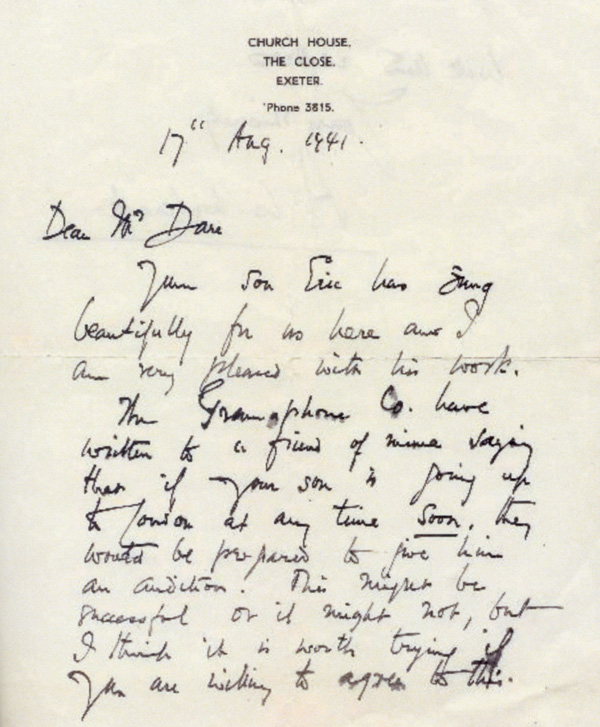 CHURCH HOUSE.
THE CLOSE.
EXETER.
'Phone 3815.
17th Aug. 1941.
Dear Mrs Dare
Your son Eric has sung
beautifully for us here and I
am very pleased with his work.
The Gramophone Co. have
written to a friend of mine saying
that if your son is going up
to London at any time soon, they
would be prepared to give him
an audition. This might be
successful or it might not, but
I think it is worth trying if
you are willing to agree to this.